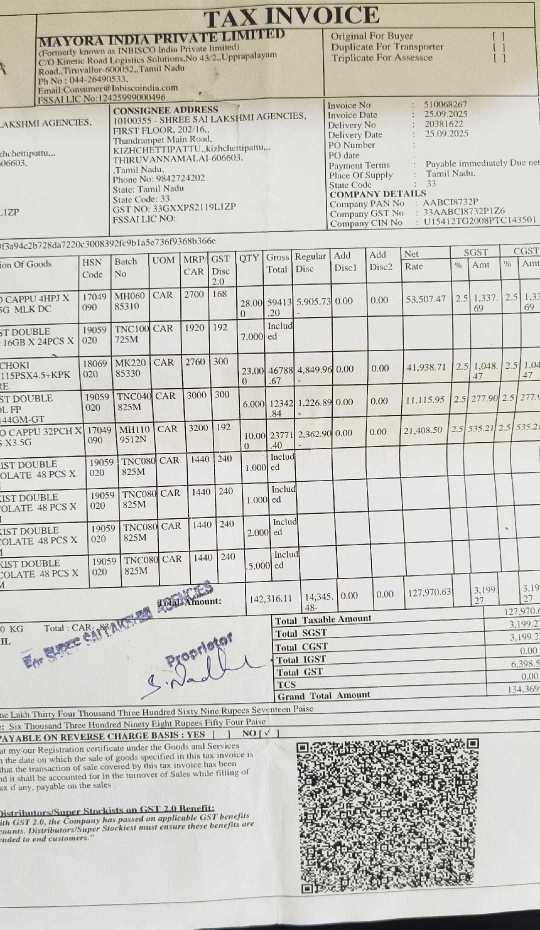 TAX INVOICE
MAYORA INDIA PRIVATE LIMITED
(Formerly known as INBISCO India Private limited)
C/O Kinetic Road Logistics Solutions,No 43/2,,Upprapalayam
Road,,Tiruvallur-600052,,Tamil Nadu
Ph No : 044-26490533,
Email:Consumer@Inbiscoindia.com
FSSAI LIC No:12425999000496
Original For Buyer [ ]
Duplicate For Transporter [ ]
Triplicate For Assessee [ ]
LAKSHMI AGENCIES,
CONSIGNEE ADDRESS
10100355 - SHREE SAI LAKSHMI AGENCIES,
FIRST FLOOR, 202/16,,
Thandrampet Main Road,
KIZHCHETTIPATTU,,kizhchettipattu,,,
THIRUVANNAMALAI-606603,
,Tamil Nadu,
Phone No: 9842724202
State: Tamil Nadu
State Code: 33
GST NO: 33GXXPS2119L1ZP
FSSAI LIC NO:
Invoice No : 510068267
Invoice Date : 25.09.2025
Delivery No : 20381622
Delivery Date : 25.09.2025
PO Number :
PO date :
Payment Terms : Payable immediately Due net
Place Of Supply : Tamil Nadu,
State Code : 33
COMPANY DETAILS
Company PAN No : AABCI8732P
Company GST No : 33AABCI8732P1Z6
Company CIN No : U15412TG2008PTC143501
ion Of Goods HSN Code Batch No UOM MRP/ CAR GST Disc 2.0 QTY Gross Total Regular Disc Add Disc1 Add Disc2 Net Rate SGST % Amt CGST % Amt
O CAPPU 4HPJ X 5G MLK DC 17049 090 MH060 85310 CAR 2700 168 28.00 0 59413 .20 5,905.73 - 0.00 0.00 53,507.47 2.5 1,337. 69 2.5 1,33
ST DOUBLE 16GB X 24PCS X 19059 020 TNC100 725M CAR 1920 192 7.000 Includ ed
CHOKI 115PSX4.5+KPK RE 18069 020 MK220 85330 CAR 2760 300 23.00 0 46788 .67 4,849.96 - 0.00 0.00 41,938.71 2.5 1,048. 47 2.5 1,04 47
ST DOUBLE L FP 144GM-GT 19059 020 TNC040 825M CAR 3000 300 6.000 12342 .84 1,226.89 - 0.00 0.00 11,115.95 2.5 277.90 2.5 277.9
O CAPPU 32PCH X S X3.5G 17049 090 MH110 9512N CAR 3200 192 10.00 0 23771 .40 2,362.90 - 0.00 0.00 21,408.50 2.5 535.21 2.5 535.2
KIST DOUBLE COLATE 48 PCS X 19059 020 TNC080 825M CAR 1440 240 1.000 Includ ed
KIST DOUBLE COLATE 48 PCS X M 19059 020 TNC080 825M CAR 1440 240 1.000 Includ ed
KIST DOUBLE COLATE 48 PCS X M 19059 020 TNC080 825M CAR 1440 240 2.000 Includ ed
KIST DOUBLE COLATE 48 PCS X M 19059 020 TNC080 825M CAR 1440 240 5.000 Includ ed
Total Amount: 142,316.11 14,345. 48- 0.00 0.00 127,970.63 3,199 .27 3,19 27
0 KG Total : CAR
For SHREE SAI LAKSHMI AGENCIES
Proprietor
Total Taxable Amount 127,970.6
Total SGST 3,199.27
Total CGST 3,199.2
Total IGST 0.00
Total GST 6,398.5
TCS 0.00
Grand Total Amount 134,369.
ne Lakh Thirty Four Thousand Three Hundred Sixty Nine Rupees Seventeen Paise
: Six Thousand Three Hundred Ninety Eight Rupees Fifty Four Paise
PAYABLE ON REVERSE CHARGE BASIS : YES [ ] NO [√ ]
at my/our Registration certificate under the Goods and Services
n the date on which the sale of goods specified in this tax invoice is
that the transaction of sale covered by this tax invoice has been
nd it shall be accounted for in the turnover of Sales while filling of
ax if any, payable on the sales
Distributors/Super Stockists on GST 2.0 Benefit:
ith GST 2.0, the Company has passed on applicable GST benefits
counts. Distributors/Super Stockiest must ensure these benefits are
ended to end customers."